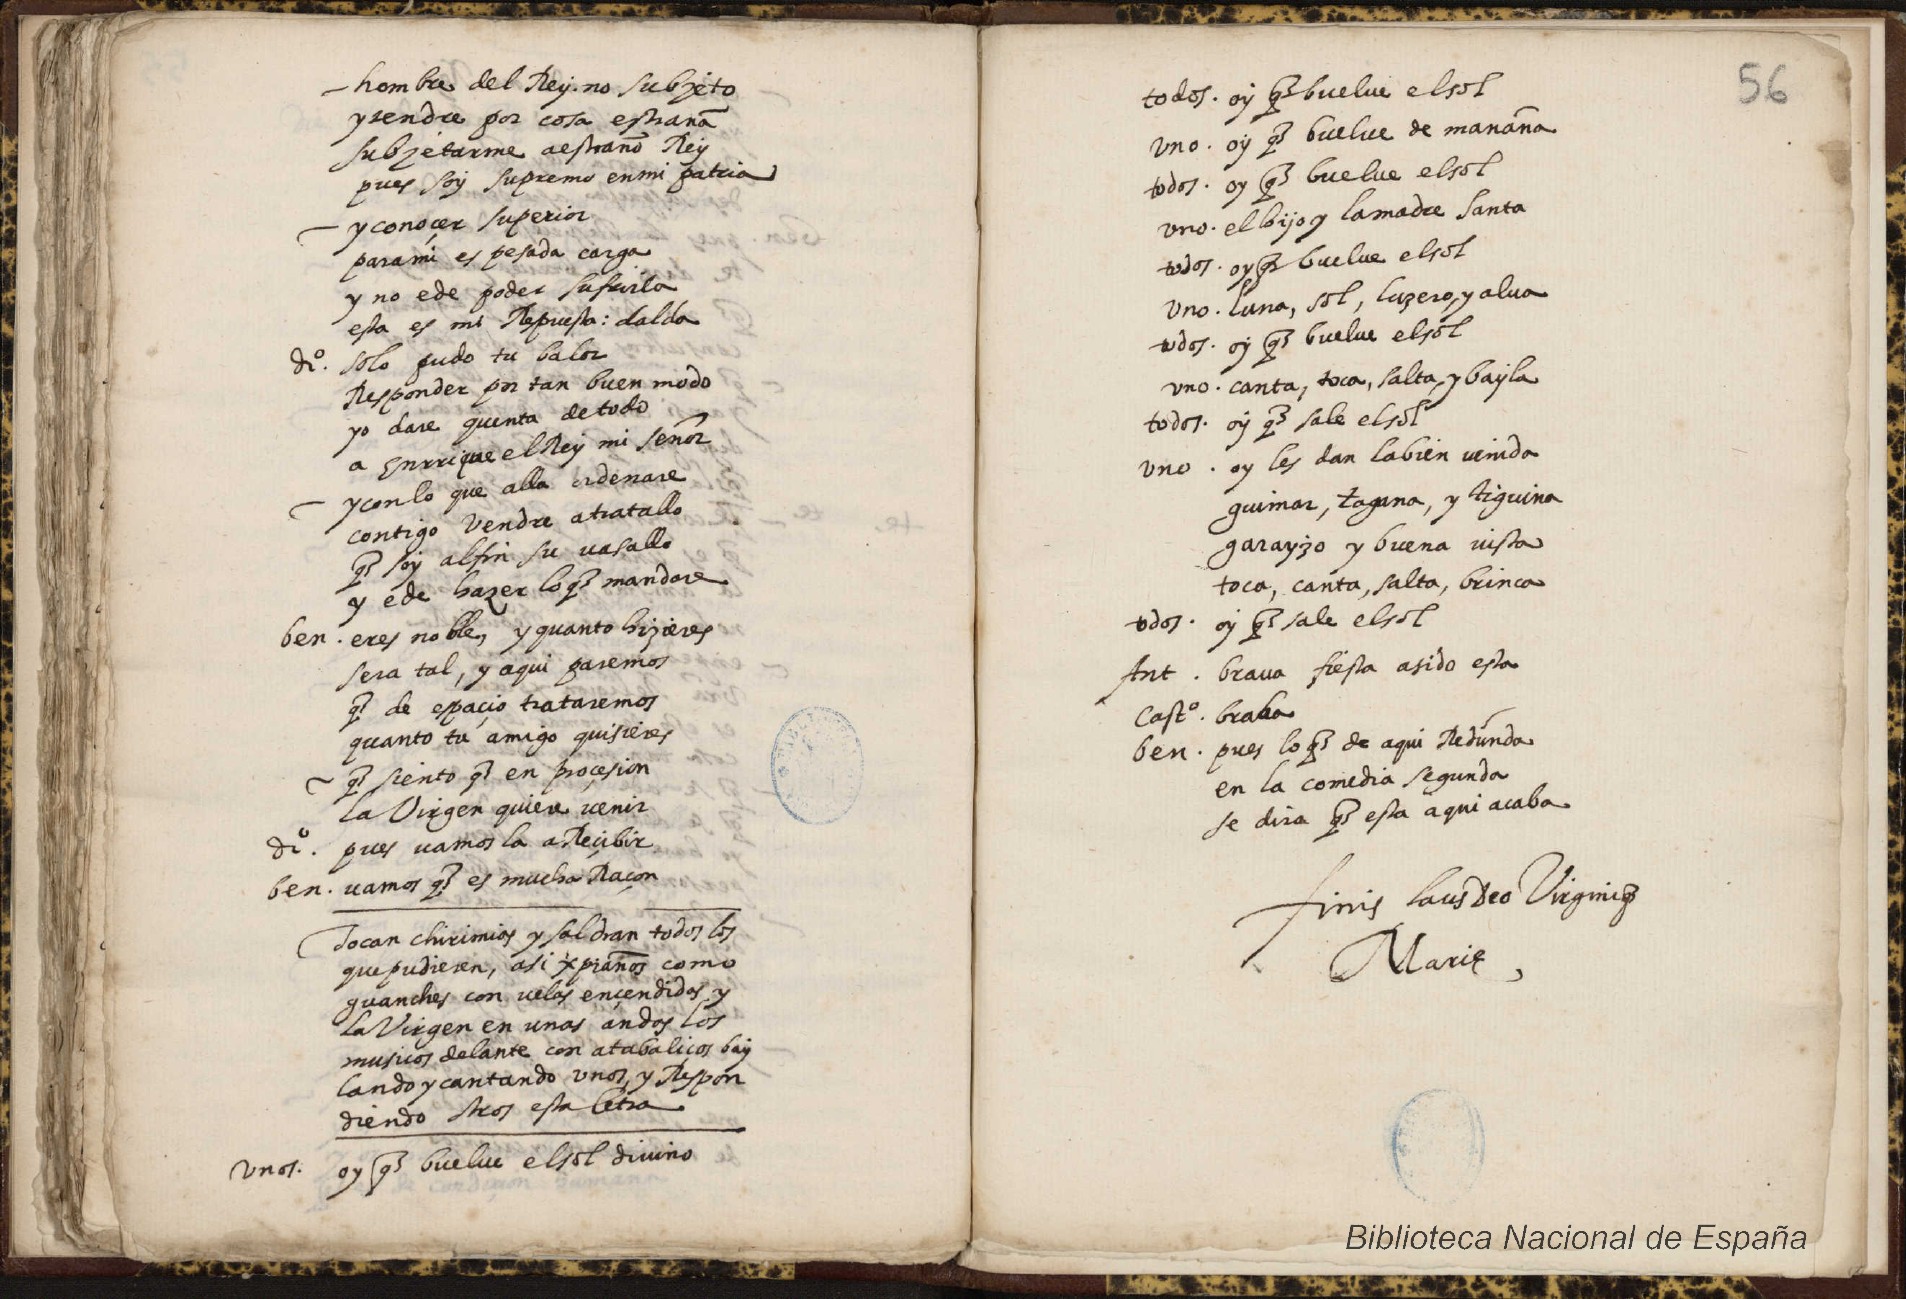 hombre del Rey no subjeto
y rendre por cosa estrana
subjetarme a estraño Rey
pues soy supremo en mi patria
y conoçer superior
para mi es pesada carga
y no e de poder sufrirla
esta es mi Repuesta: dalda
di.º solo pudo tu balor
Responder por tan buen modo
yo dare quenta de todo
a Enrrique el Rey mi señor
y con lo que alla ordenare
contigo vendre a tratallo
q soy al fin su uasallo
y e de hazer lo q mandare
ben. eres noble, y quanto hizieres
sera tal, y aqui paremos
q de espaçio trataremos
quanto tu amigo quisieres
q siento q en proçesion
la Virgen quiere venir
di.º pues uamos la a Reçibir
ben. uamos q es mucha Raçon
Tocan chirimias y saldran todos los
que pudieren, asi xpianos como
guanches con uelas ençendidas y
la Virgen en unas andas los
musicos delante con atabalicos bay
lando y cantando unos, y Respon
diendo otros esta letra
vnos. oy q buelue el sol diuino
56
todos. oy q buelue el sol
vno. oy q buelue de mañana
todos. oy q buelue el sol
vno. el hijo y la madre santa
todos. oy q buelue el sol
vno. luna, sol, luzero, y alua
todos. oy q buelue el sol
vno. canta, toca, salta, y bayla
todos. oy q sale el sol
vno. oy les dan la bien uenida
guimar, tagana, y tiguina
garayzo y buena uista
toca, canta, salta, brinca
todos. oy q sale el sol
Ant. braua fiesta a sido esta
Cast.º braba
ben. pues lo q de aqui Redunda
en la comedia segunda
se dira q esta aqui acaba
finis laus Deo Virginiq
Marię
Biblioteca Nacional de España